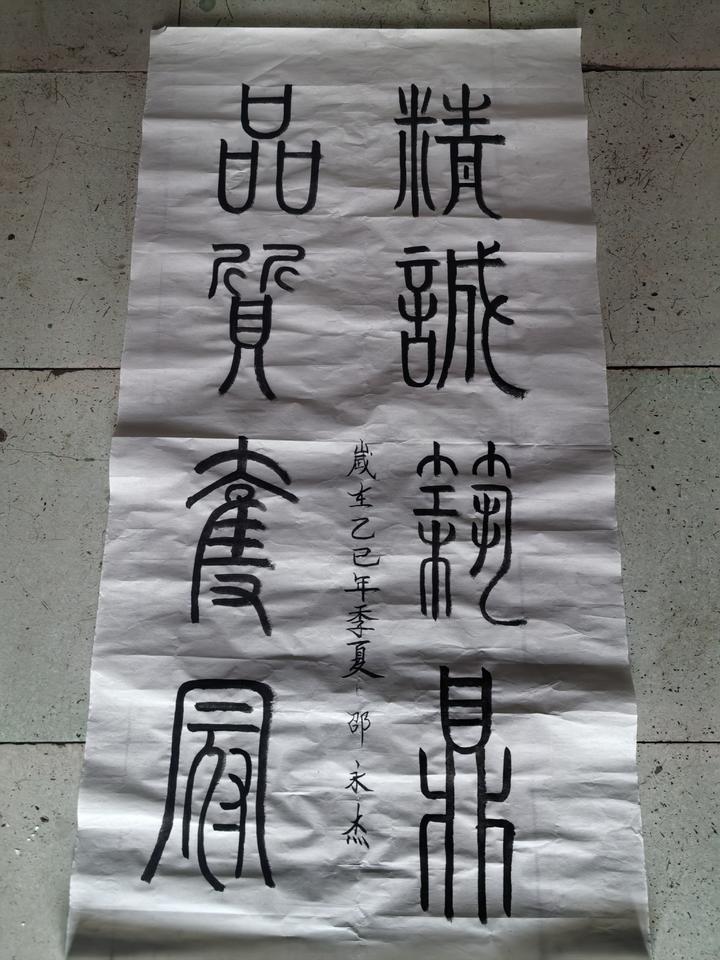 精誠築鼎
品質奪冠
歲在乙巳年季夏 邵永杰